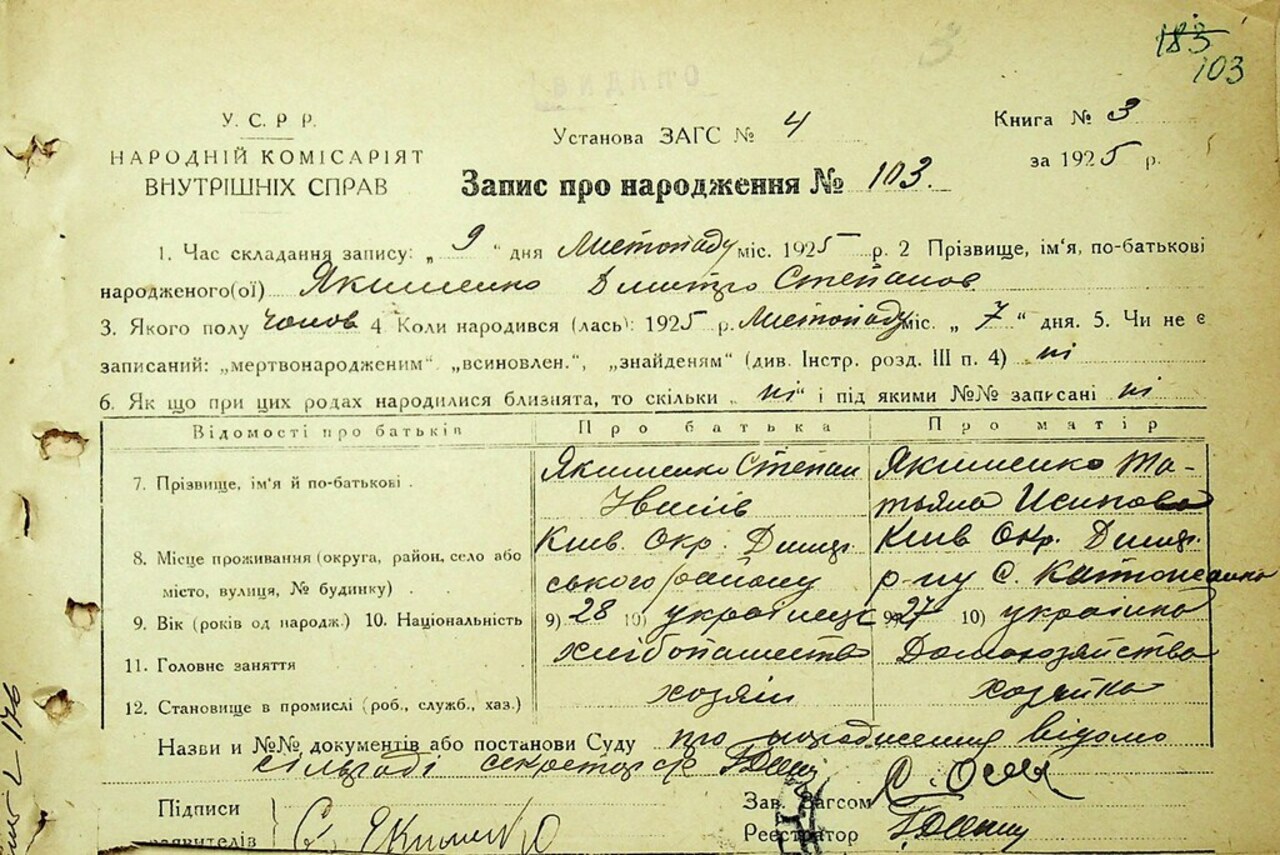 183
103
У. С. Р Р.
НАРОДНІЙ КОМІСАРІЯТ
ВНУТРІШНІХ СПРАВ
Установа ЗАГС № 4
Книга № 3
за 1925 р.
Запис про народження № 103.
1. Час складання запису: „ 9 " дня Листопаду міс. 1925 р. 2 Прізвище, ім'я, по-батькові
народженого(ої) Якименко Дмитро Степанов
3. Якого полу чолов 4 Коли народився (лась): 1925 р. Листопаду міс. „ 7 " дня. 5. Чи не є
записаний: „мертвонародженим" „всиновлен.", „знайденям" (див. Інстр. розд. III п. 4) ні
6. Як що при цих родах народилися близнята, то скільки „ ні " і під якими №№ записані ні
Відомості про батьків Про батька Про матір
7. Прізвище, ім'я й по-батькові . Якименко Степан Якименко Та-
тьяна
8. Місце проживання (округа, район, село або Київ. Окр. Димер Київ Окр. Димер.
місто, вулиця, № будинку) . ського району р-ну С.
9. Вік (років од народж.) 10. Національність 9) 28 10) українець 9) 27 10) українка
11. Головне заняття хлібопашеств Домохозяйства
12. Становище в промислі (роб., служб., хаз.) хозяін хозяйка
Назви и №№ документів або постанови Суду про народження відомо
сільраді
Підписи
заявителів С. Якименко
Зав. Загсом
Реєстратор